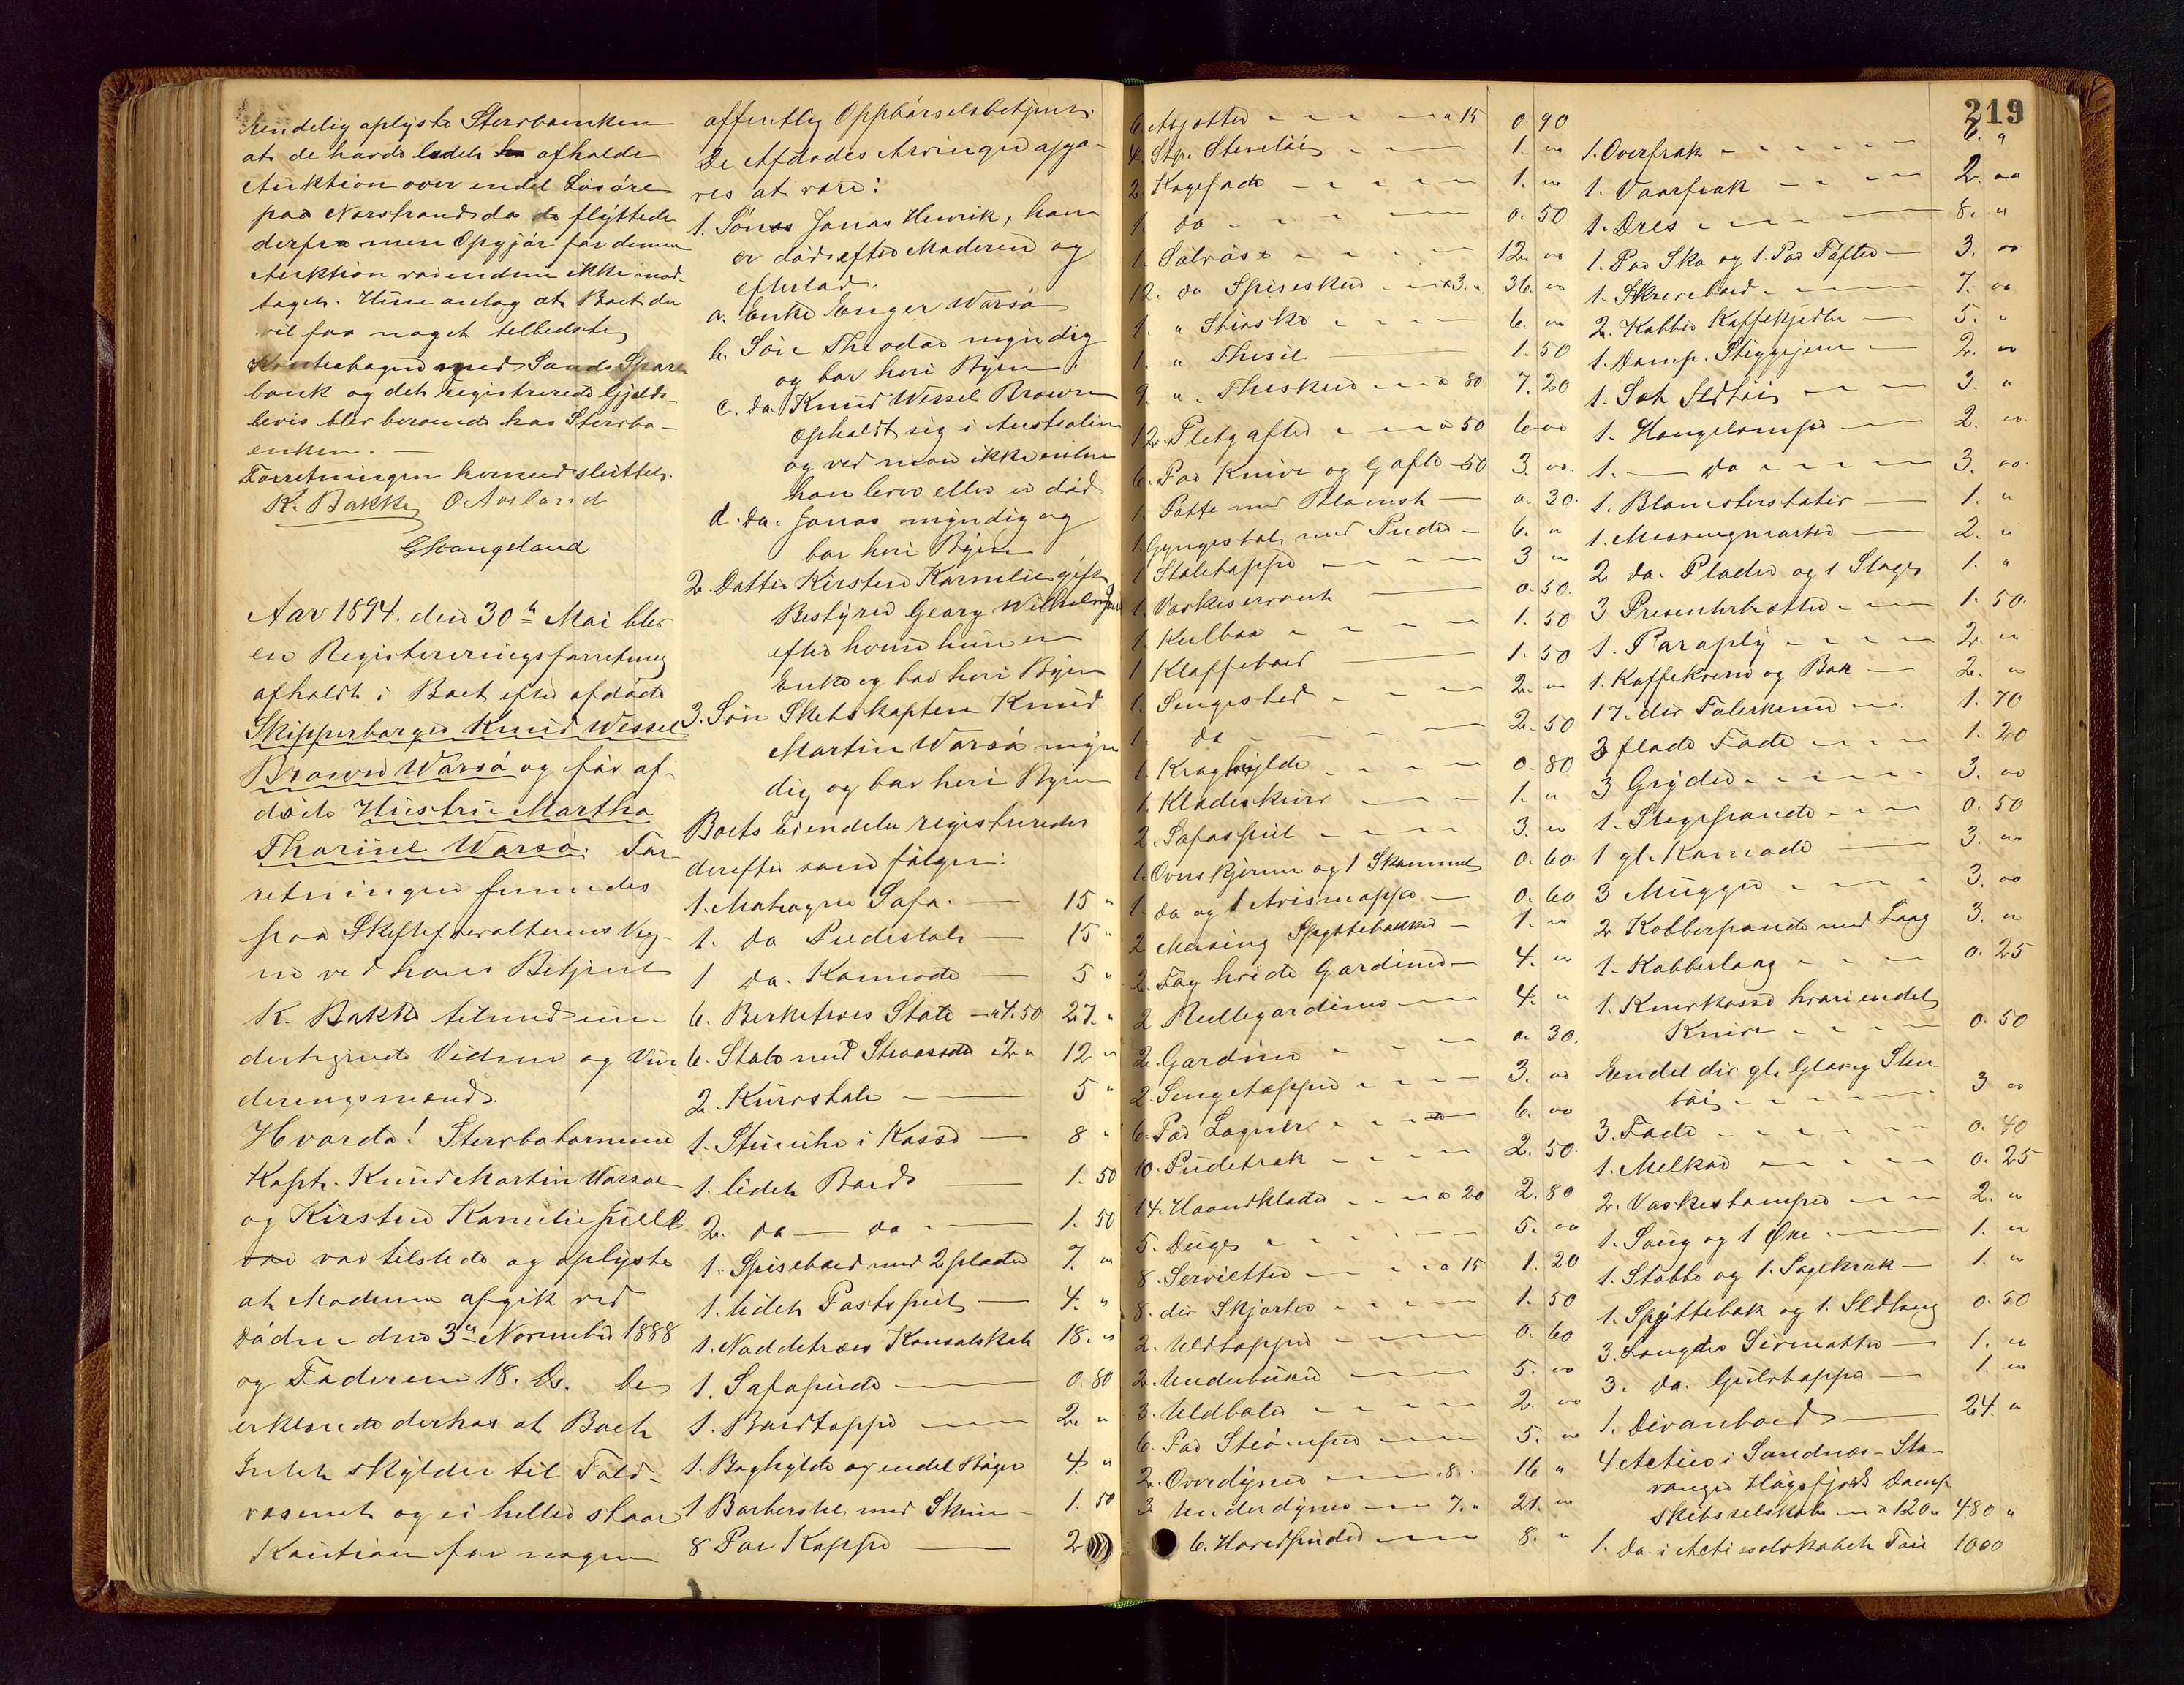 endelig oplyste Stervboenken
at de havde ladet afholde
Auktion over endel Løsøre
paa Norstrand da de flyttede
derfra men Opgjør for denne
Auktion var endnu ikke mod-
taget. Hun antog at Boet da
vil faa noget tilbedste
Kontrabogen med Sands Spare-
bank og det registrerede Gjælds-
bevis blev beroende hos Stervbo-
enken. —
Forretningen hermed sluttet.
K. Bakke O Aarland
G Haugeland
Aar 1894. den 30te Mai blev
en Registreringsforretning
afholdt i Boet efter afdøde
Skipperborger Knud Wessel
Brown Warsø og før af-
døde Hustru Martha
Thorine Warsø. For-
retningen fremmedes
paa Skifteforvalterens Veg-
ne ved hans Betjent
K. Bakke tilmed un-
dertegnede Vidner og Vur-
deringsmænd.
Hvorda! Stervboternene
Kapt. Knud Martin Warsøe
og Kirsten Kornelie Juell
var tilstede og oplyste
at Moderen afgik ved
Døden den 3die November 1888
og Faderen 18. Ds. De
erklærede derhos at Boet
Intet skylder til Told-
væsenet og ei heller staar
Kaution for nogen
offentlig Oppbørselsbetjent.
De Afdødes Arvinger opga-
ves at være:
1. Sønnen Jonas Henrik, han
er død efter Moderen og
efterlod.
a. Enke Enger Warsø
b. Søn Theodor myndig
og bor heri Byen.
c. Do Knud Wessel Brown
opholdt sig i Australien
og ved man ikke enten
han lever eller er død
d. Do. Jonas myndig og
bor heri Byen
2. Datter Kirsten Kornelie gift
Bestyrer Georg Wilhelm Juell
efter hvem hun er
Enke og bor heri Byen
3. Søn Skibskaptein Knud
Martin Warsø myn
dig og bor heri Byen
Boets Eiendele registreredes
derefter som følger:
1. Mahogne Sofa. — 15 "
1. do Piedestal — 15 "
1 do. Komode — 5 "
6. Birketræs Stole — a 4.50 27. "
6. Stole med Straasæde a 2 " 12 "
2. Kurvstole — 5 "
1. Stueuhr i Kasse — 8 "
1. lidet Bord — 1. 50
2. do — do — 1. 50
1. Spisebord med 2 plader 7. "
1. lidet Postspeil — 4. "
1. Nøddetræes Konsolskab 18. "
1. Sofapude — 0. 80
1. Bordtæppe — 2. "
1. Boghylde og endel Bøger 4. "
1 Barberstel med Skrin — 1. 50
8 Par Kopper — 2
219
6. Asjetter — a 15 0. 90
4. Stp. Stentøi — 1. "
2. Kagefade — 1. "
1. do — 0. 50
1. Sølvøse — 12. "
12. do Spiseskeer — a 3. " 36. "
1. " Strøske — 6. "
1 " Thesil 1. 50
9. " Theskeer — a 80 7. 20
12. Pletgafler — a 50 6 "
6. Par Knive og Gafler - 50 3. "
1. Potte med Blomst — 0. 30.
1. Gyngestol med Puder — 6. "
1 Stoletæppe — 3 "
1. Vaskeservant — 0. 50.
1. Kulbox — 1. 50
1 Klaffebord — 1. 50
1. Sengested — 2. "
1. do — 2. 50
1. Kroghylde — 0. 80
1. Klædeskurv — 1. "
2. Sofaspeil — 3. "
1. Ovnskjerm og 1 Skammel 0. 60.
1. do og 1 Avismappe — 0. 60
2 Messing Spyttebakker — 1. "
2. Fag hvide Gardiner — 4. "
2 Rullegardiner — 4. "
2. Gardiner — 0. 30.
2. Sengetæpper — 3. "
6. Par Lagner — 6. "
10. Pudetræk — 2. 50
14. Haandklæder — a 20 2. 80
5. Duger — 5. "
8. Servietter — a 15 1. 20
8. div Skjorter — 1. 50
2. Uldtæpper — 0. 60
2. Underbuxer — 5. "
3. Uldboler — 2. "
6. Par Strømper — 5. "
2. Overdyner — a 8. " 16 "
3. Underdyner — 7. " 21. "
6. Hovedpuder — 8. "
1. Overfrak — 6. "
1. Vaarfrak — 2. "
1. Dres — 8. "
1. Par Sko og 1. Par Tøfler — 3. "
1. Skrivebord — 7. "
2. Kobber Kaffekjedler — 5. "
1. Damp. Strygejern — 2. "
1. Sæt Ildtøi — 3. "
1. Hængelampe — 2. "
1. — do — 3. "
1. Blomsterstativ — 1. "
1. Messingmorter — 2. "
2 do. Plader og 1 Stage 1. "
3 Presenterbrætter — 1. 50
1. Paraply — 2. "
1. Kaffekværn og Box — 2. "
17. div Talerkener — 1. 70
3 flade Fade — 1. 20
3 Gryder — 3. "
1. Stegepande — 0. 50
1 gl. Komode — 3. "
3 Mugger — 3. "
2 Kobberpande med Laag 3. "
1. Kobberlaag — 0. 25
1. Knivkasse hvori endel
Knive — 0. 50
Endel div gl. Glas og Sten-
tøi — 3 "
3. Fade — 0. 40
1. Melkar — 0. 25
2. Vaskestamper — 2. "
1. Saug og 1 Øxe — 1. "
1. Stabbe og 1. Sagekrak — 1. "
1. Spyttebak og 1. Ildtang 0. 50
3. Længder Sivmatter — 1. "
3. do. Gulvtæppe — 1. "
1. Divanbord — 24. "
4 Actier i Sandnæs - Sta-
vanger Høgsfjords Damp-
skibsselskab — a 120 " 480 "
1. Do. i Actieselskabet 1000